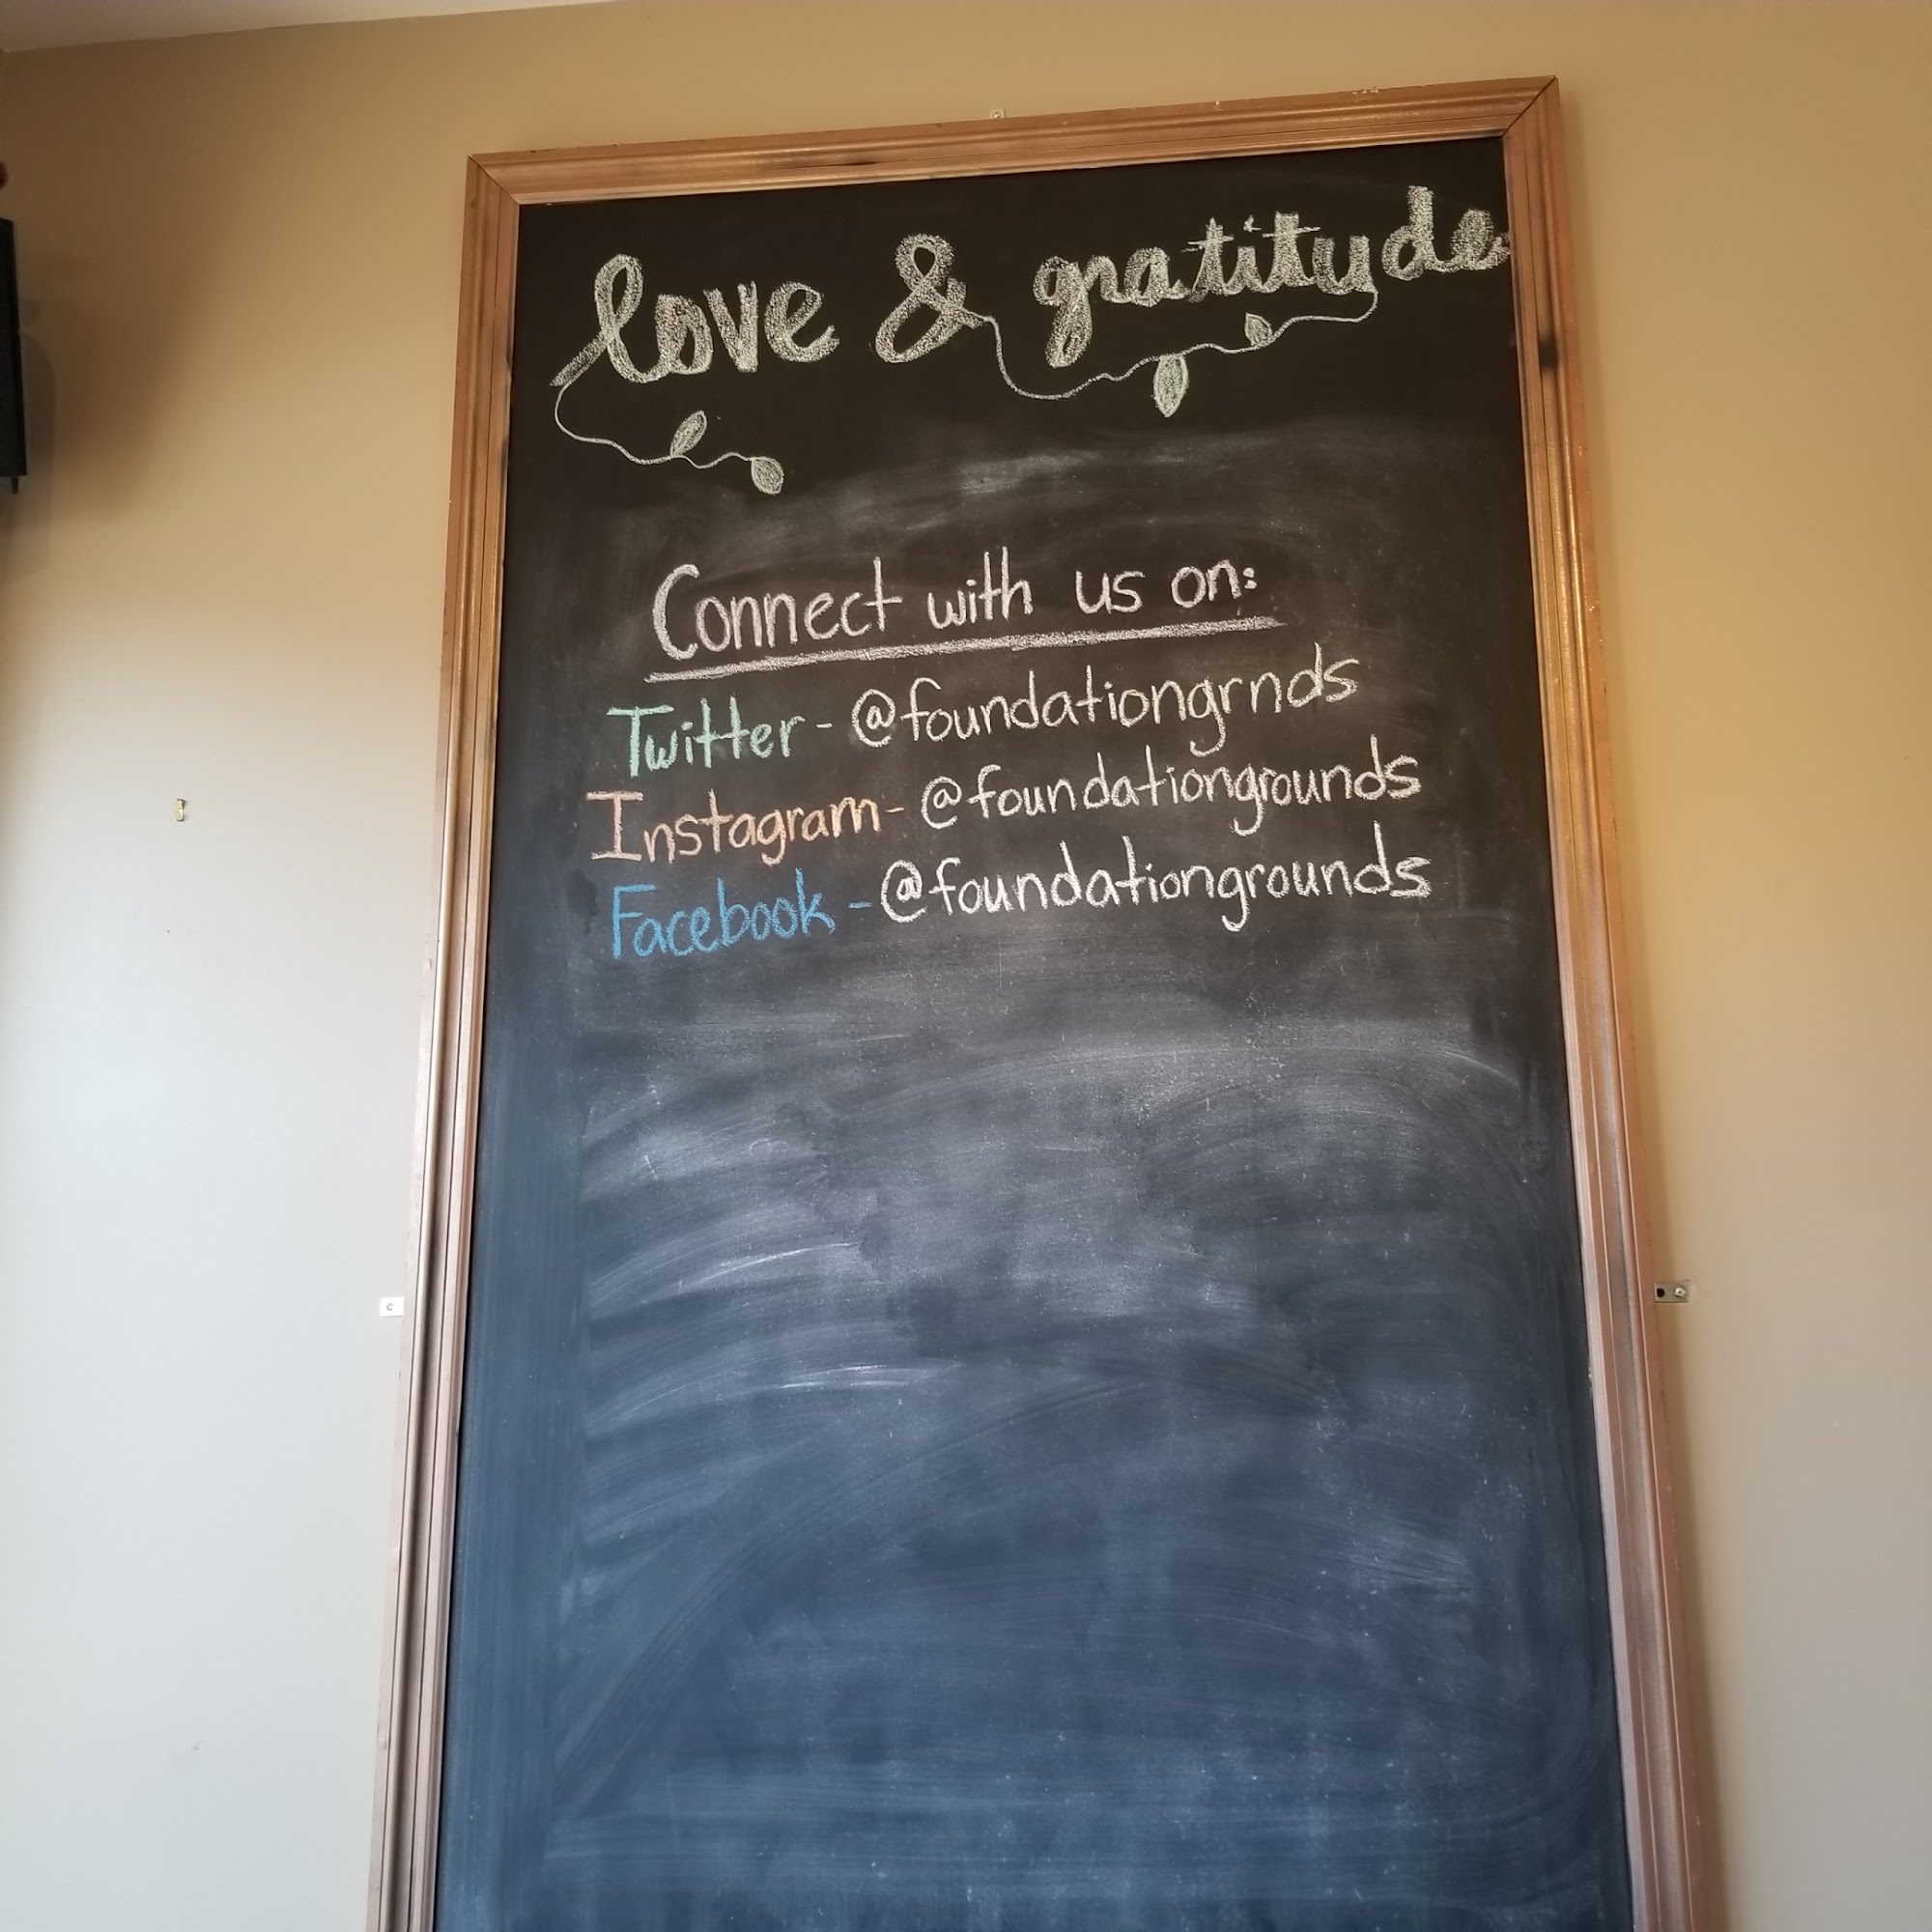 love & gratitude
Connect with us on:
Twitter - @foundationgrnds
Instagram - @foundationgrounds
Facebook - @foundationgrounds